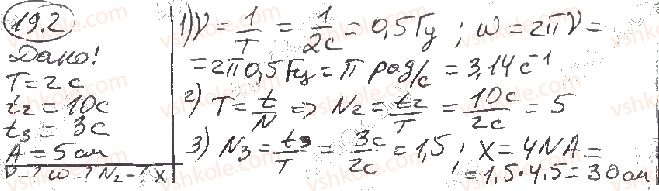 19.2
Дано!
T = 2c
t₂ = 10c
t₃ = 3c
A = 5см
ν - ? ω - ? N₂ - ? X
1) ν = 1/T = 1/2c = 0,5Гц ; ω = 2πν =
= 2π0,5Гц = π рад/c = 3,14c⁻¹
2) T = t/N => N₂ = t₂/T = 10c/2c = 5
3) N₃ = t₃/T = 3c/2c = 1,5 ; X = 4NA =
= 1,5·4·5 = 30см